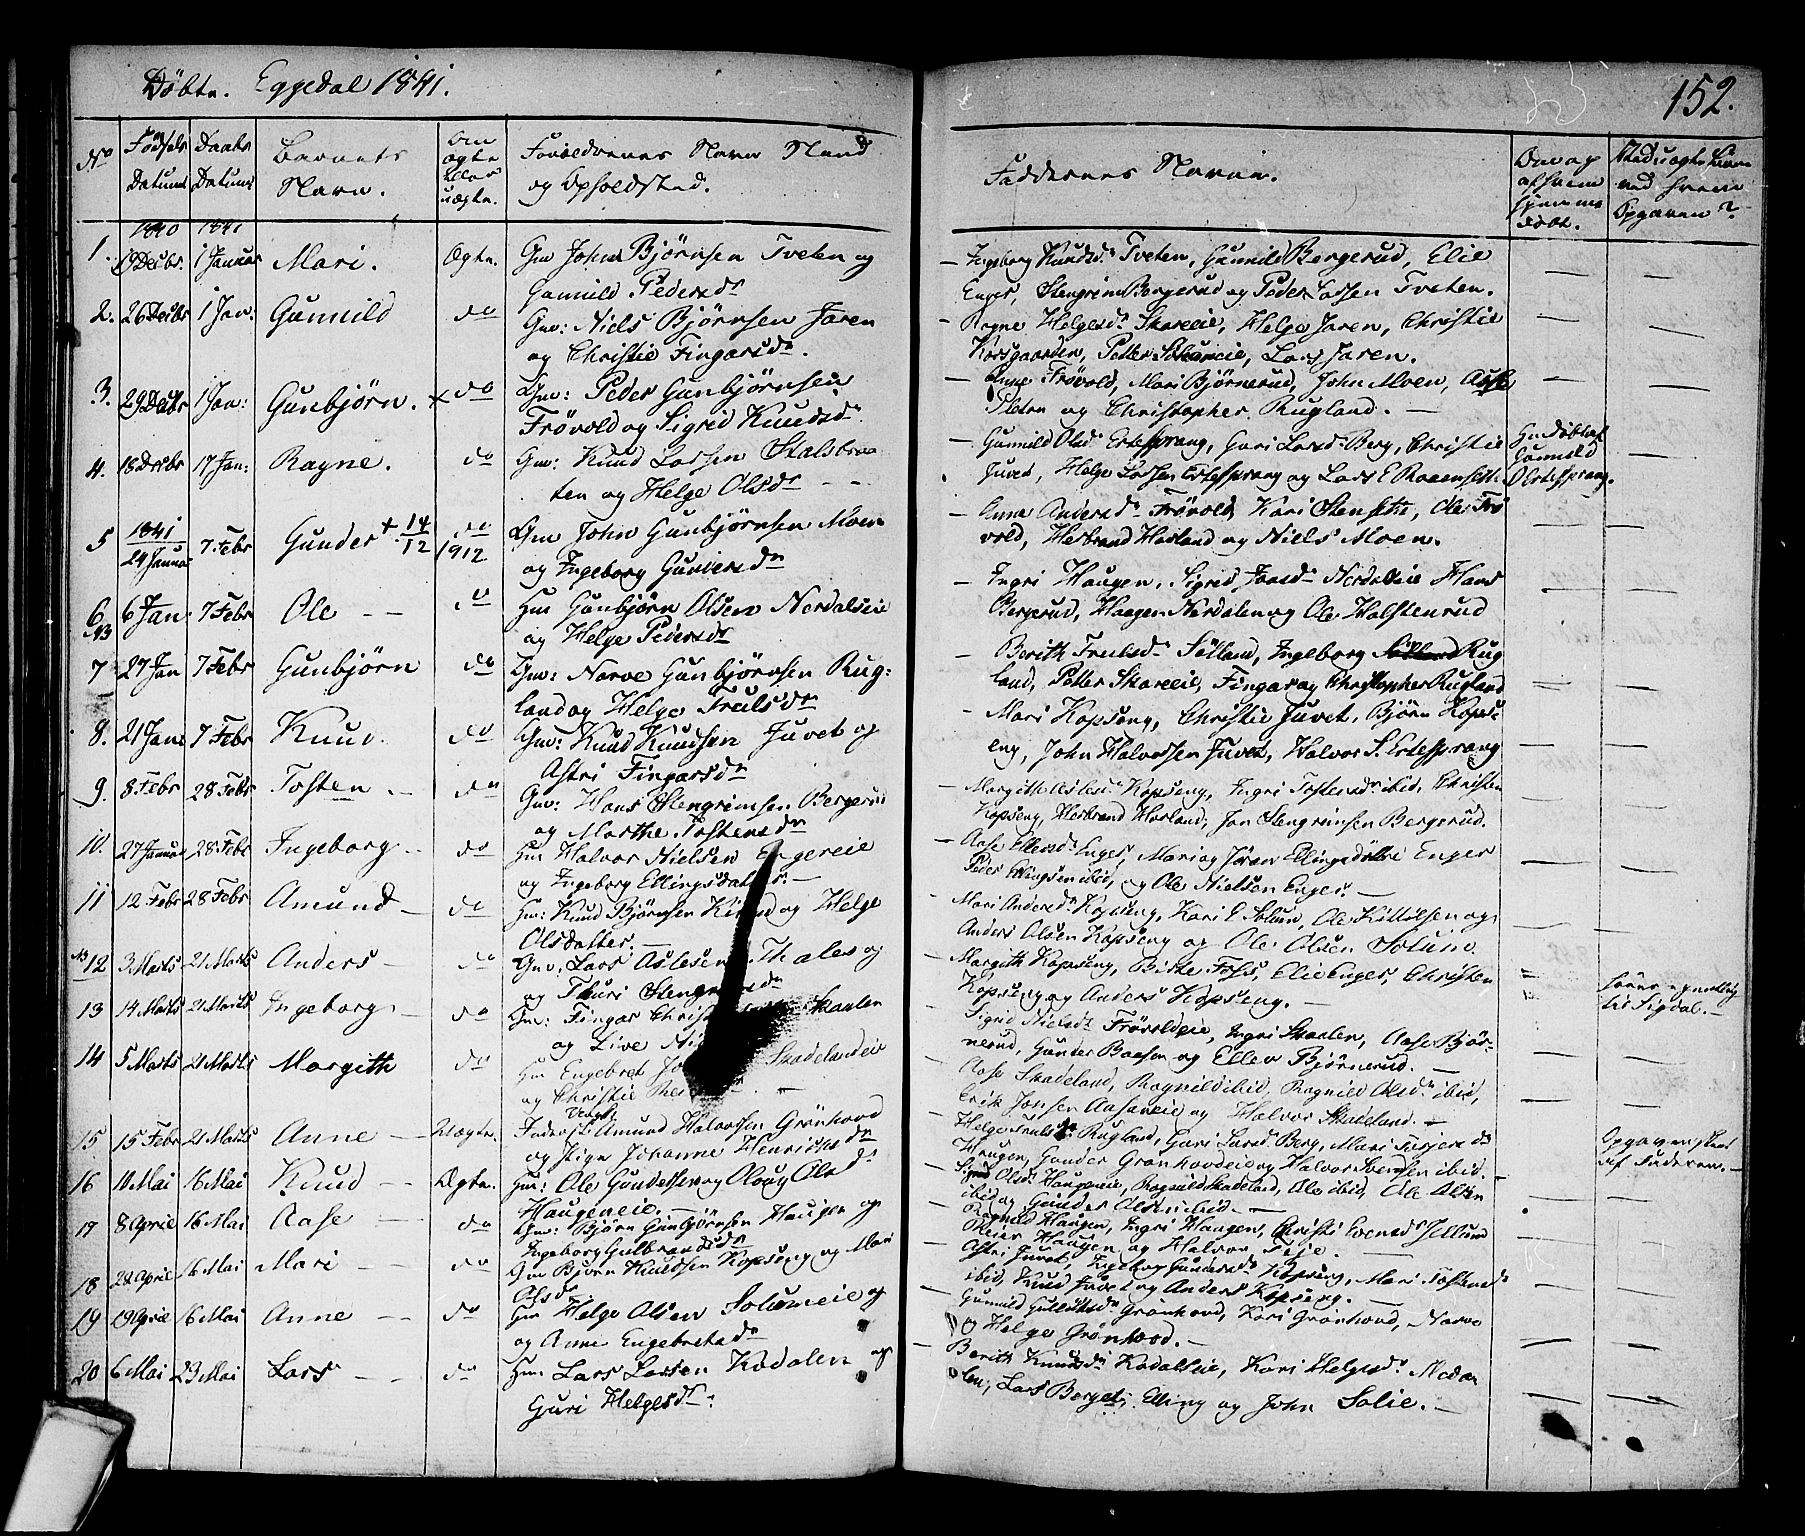 Døbte. Eggedal 1841.
152.
No
Fødsels Datum
Daabs Datum
Barnets Navn.
Om ægte eller uægte.
Forældrenes Navn Stand og Opholdsted.
Faddernes Navne.
1840 1841
1. 1 Januar Mari. Ægte. Gm John Bjørnsen Tveten og
Gunnild Pedersdr
Ingeborg Knudsdr Tveten, Gunnild Bergerud, Elie
Enger, Stengrim Bergerud og Peder Larsen Tveten.
2. 26 Decbr 1 Jan: Gunnild do Gm: Niels Bjørnsen Jaren
og Christie Fingarsdr.
Ragne Helgesdr Skareeie, Helge Jaren, Christie
Korsgaarden, Petter Skareeie, Lars Jaren.
3. 29 Decbr 1 Jan: Gunbjørn. x do Gm: Peder Gunbjørnsen
Frøvold og Sigrid Knudsdr
Anne Frøvold, Mari Bjørnerud, John Moen, Asle
Pleten og Christopher Rugland. —
4. 18 Decbr 17 Jan: Ragne. do Gm: Knud Larsen Stalsbraa-
ten og Helge Olsdr - -
Gunnild Olsdr Ertesprang, Guri Larsdr Berg, Christie
Juvet, Helge Larsen Ertesprang og Lars E
Hmdøbt af
Gunnild
O Ertesprang.
5 1841 24 Januar 7. Febr Gunder + 14/12 1912 do Gm John Gunbjørnsen Moen
og Ingeborg Gundersdr
Anna Andersdr Frøvold, Kari Stensetie, Ole Frø
vold, Herbrand Havland og Niels Moen.
6. NB 6 Jan: 7 Febr Ole — — do Hm Gunbjørn Olsen Nerdalseie
og Helge Pedersdr
Ingri Haugen, Sigrid Nerdaleie Hans
Bergerud, Haagen Nerdalen og Ole Halstenrud
7 27 Jan 7 Febr Gunbjørn do Gm: Narve Gunbjørnsen Rug-
land og Helge Trulsdr
Berith Trulsdr Sølland, Ingeborg Rug
land, Petter Skareeie, Fingar og Christopher Rugland
8. 21 Jan: 7 Febr Knud do Gm: Knud Knudsen Juvet og
Astri Fingarsdr
Mari Kopseng, Christie Juvet, Bjørn Kops-
eng, John Halvorsen Juvet, Halvor S. Ertesprang
9. 8 Febr 28 Febr Tosten. — do Gm: Hans Stengrimsen Bergerud
og Marthe Tostensdr
Margith Aslesdr Kopseng, Ingri Tostensdr ibid, Christen
Kopseng, Herbrand Havland, Jon Stengrimsen Bergerud.
10. 27 Januar 28 Febr Ingeborg. - do Hm Halvor Nielsen Engereie
og Ingeborg Ellingsdatter. —
Aase Ellersdr Enger, Mari og Jøran Ellingsdøttre Enger
Peder Ellingsen ibid, og Ole Nielsen Enger. —
11 12 Febr 28 Febr Amund — do Hm: Knud Bjørnsen og Helge
Olsdatter. —
Mari Andersdr Kopseng, Kari E. Solum, Ole Kittilsen og
Anders Olsen Kopseng og Ole Olsen Solum.
NB 12 3 Marts 21 Marts Anders — do Gm: Lars Aslesen Thales og
og Thuri
Margith Kopseng, Birte Foss, Elie Enger, Christen
Kopseng og Anders Kopseng. —
hører egentlig
til Sigdal. —
13 14 Marts 21 Marts Ingeborg — do Gm: Fingar Skaalen
og Live
Sigrid Nielsdr Frøvoldeie, Ingri Skaalen, Aase Bjør-
nerud, Gunder Baasen og Eller Bjørnerud. —
14 5 Marts 21 Marts Margith do Hm Engebret Skadelandeie
og Christie
Aase Skadeland, Ragnild ibid, Ragnild Olsdr ibid,
Erik Jonsen Aasaneie og Halvor Skadeland. —
15 15 Febr 21 Marts Anne — Uægte. Ungk. Amund Halvorsen Grønhovd
og Pige Johanne Henriksdr
Helge Trulsdr Rugland, Guri Larsdr Berg, Mari
Haugen, Gunder Grønhovdeie og Halvor Svensen ibid.
Opgaven skeet
af Faderen. —
16 10 Mai 16 Mai Knud — Ægte. Hm: Ole Gundersen og Olaug Olsdr
Haugeneie. —
Sigrid Olsdr Haugeneie, Ragnild Skadeland, Ole ibid, Ole Olsen
ibid og Gunder Olsen ibid. —
17 8 April 16 Mai Aase — do Gm: Bjørn Gunbjørnsen Haugen og
Ingeborg Gulbrandsdr
Ragnild Haugen, Ingri Haugen, Christi Evensdr Jellum
Reier Haugen og Halvor Teje.
18 22 Aprile 16 Mai Mari — do Gm Bjørn Knudsen Kopseng og Mari
Olsdr
Astri Juvet, Ingeborg Gundersdr Kopseng, Mari Tostensdr
ibid, Knud Juvet og Anders Kopseng. —
19 19 Aprile 16 Mai Anne — do Hm Helge Olsen Solumeie og
og Anne Engebretsdr
Gunnild Gulliksdr Grønhovd, Kari Grønhovd, Narve
og Helge Grønhovd. —
20 6 Mai 23 Mai Lars — do Hm: Lars Larsen Kadalen og
Guri Helgesdr:
Berith Knudsdr Kadalseie, Kari Helgesdr Meda
len, Lars Berget, Elling og John Solie. —